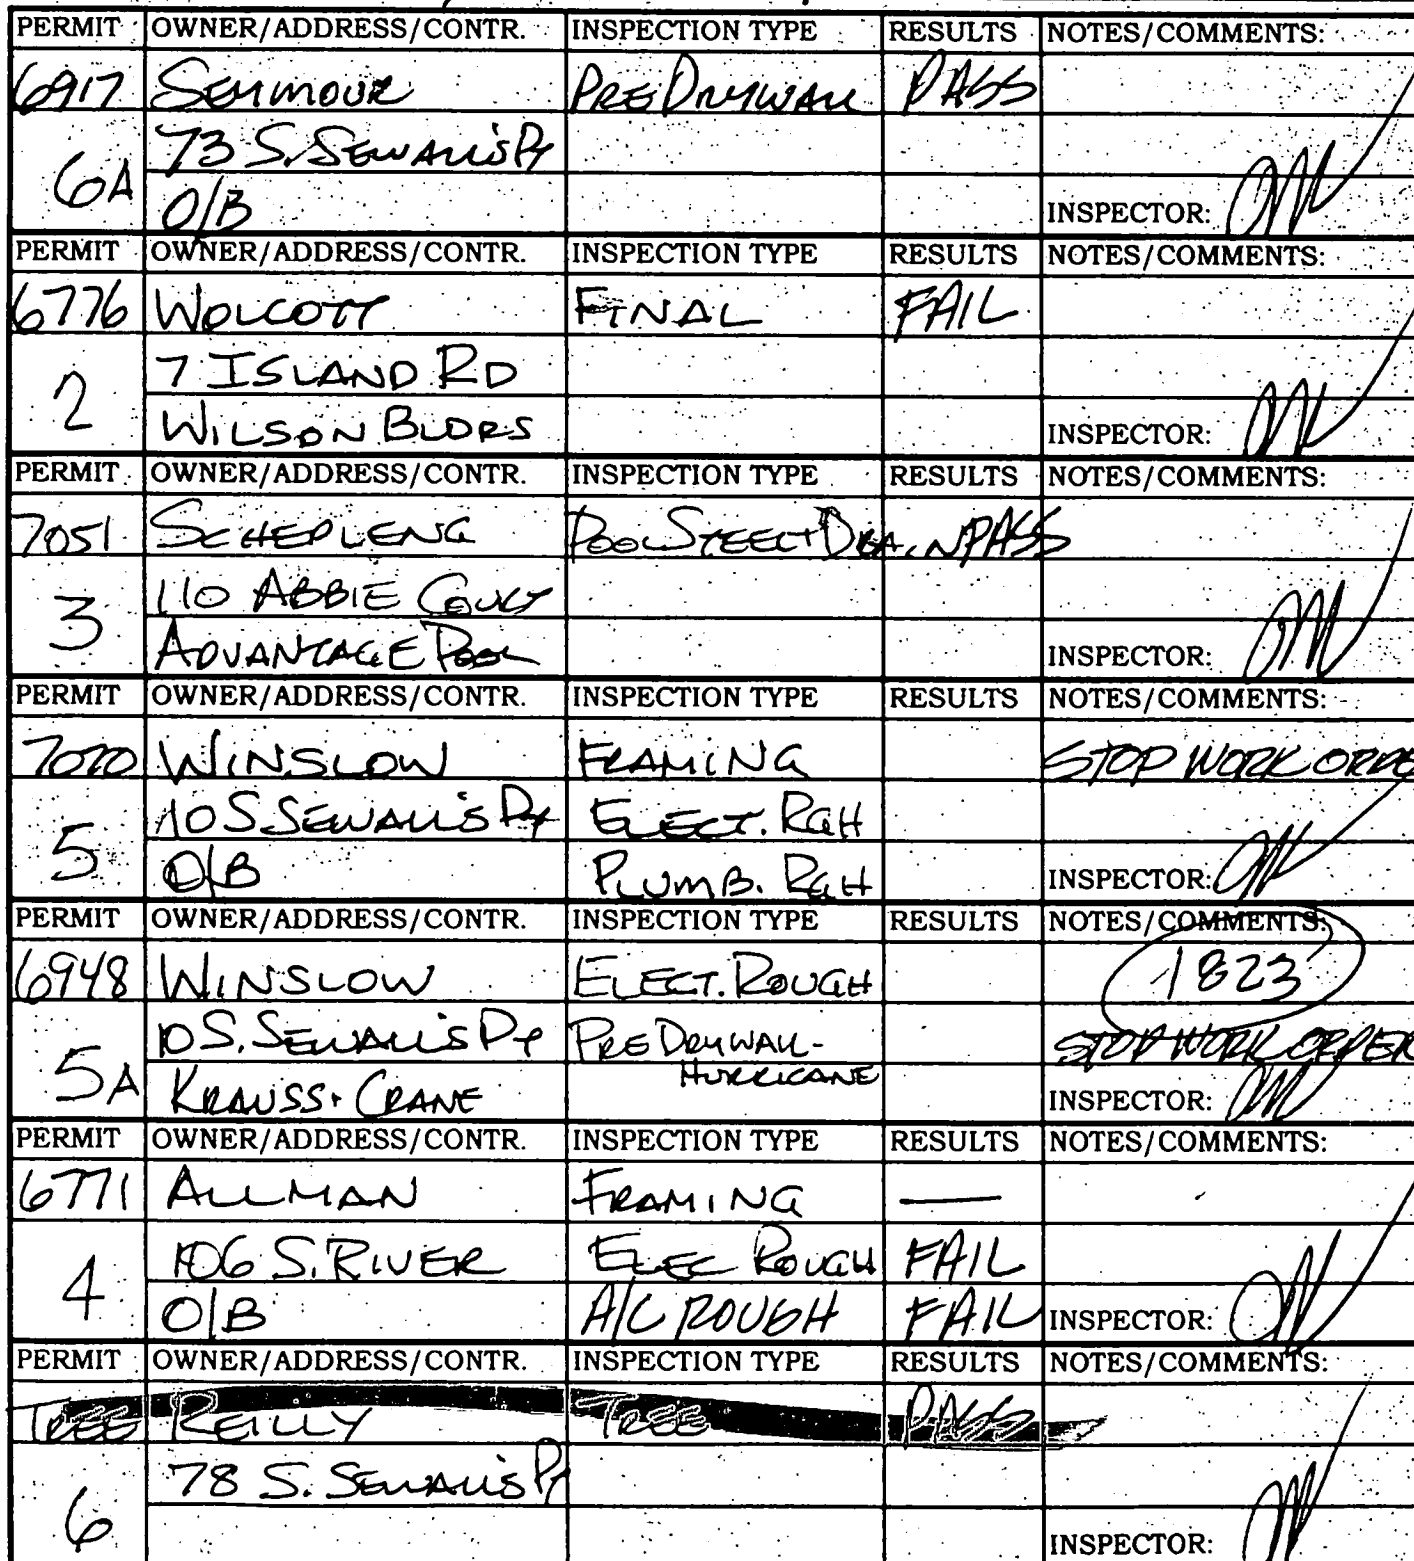 PERMIT OWNER/ADDRESS/CONTR. INSPECTION TYPE RESULTS NOTES/COMMENTS:
6917 SEYMOUR PRE DRYWALL PASS
73 S. SEWALL'S PT
6A O/B INSPECTOR:
PERMIT OWNER/ADDRESS/CONTR. INSPECTION TYPE RESULTS NOTES/COMMENTS:
6776 WOLCOTT FINAL FAIL
7 ISLAND RD
2 WILSON BLDRS INSPECTOR:
PERMIT OWNER/ADDRESS/CONTR. INSPECTION TYPE RESULTS NOTES/COMMENTS:
7051 SCHEPLENG POOL STEEL+DRAIN PASS
110 ABBIE COURT
3 ADVANTAGE POOL INSPECTOR:
PERMIT OWNER/ADDRESS/CONTR. INSPECTION TYPE RESULTS NOTES/COMMENTS:
WINSLOW FRAMING STOP WORK ORDE
10 S. SEWALL'S PT ELECT. RGH
5 O/B PLUMB. RGH INSPECTOR:
PERMIT OWNER/ADDRESS/CONTR. INSPECTION TYPE RESULTS NOTES/COMMENTS:
6948 WINSLOW ELECT. ROUGH 1823
10 S. SEWALL'S PT PRE DRYWALL- STOP WORK ORDER
HURRICANE
5A KRAUSS + CRANE INSPECTOR:
PERMIT OWNER/ADDRESS/CONTR. INSPECTION TYPE RESULTS NOTES/COMMENTS:
6771 ALLMAN FRAMING —
106 S. RIVER ELEC ROUGH FAIL
4 O/B A/C ROUGH FAIL INSPECTOR:
PERMIT OWNER/ADDRESS/CONTR. INSPECTION TYPE RESULTS NOTES/COMMENTS:
TREE REILLY TREE PASS
78 S. SEWALL'S PT
6 INSPECTOR: